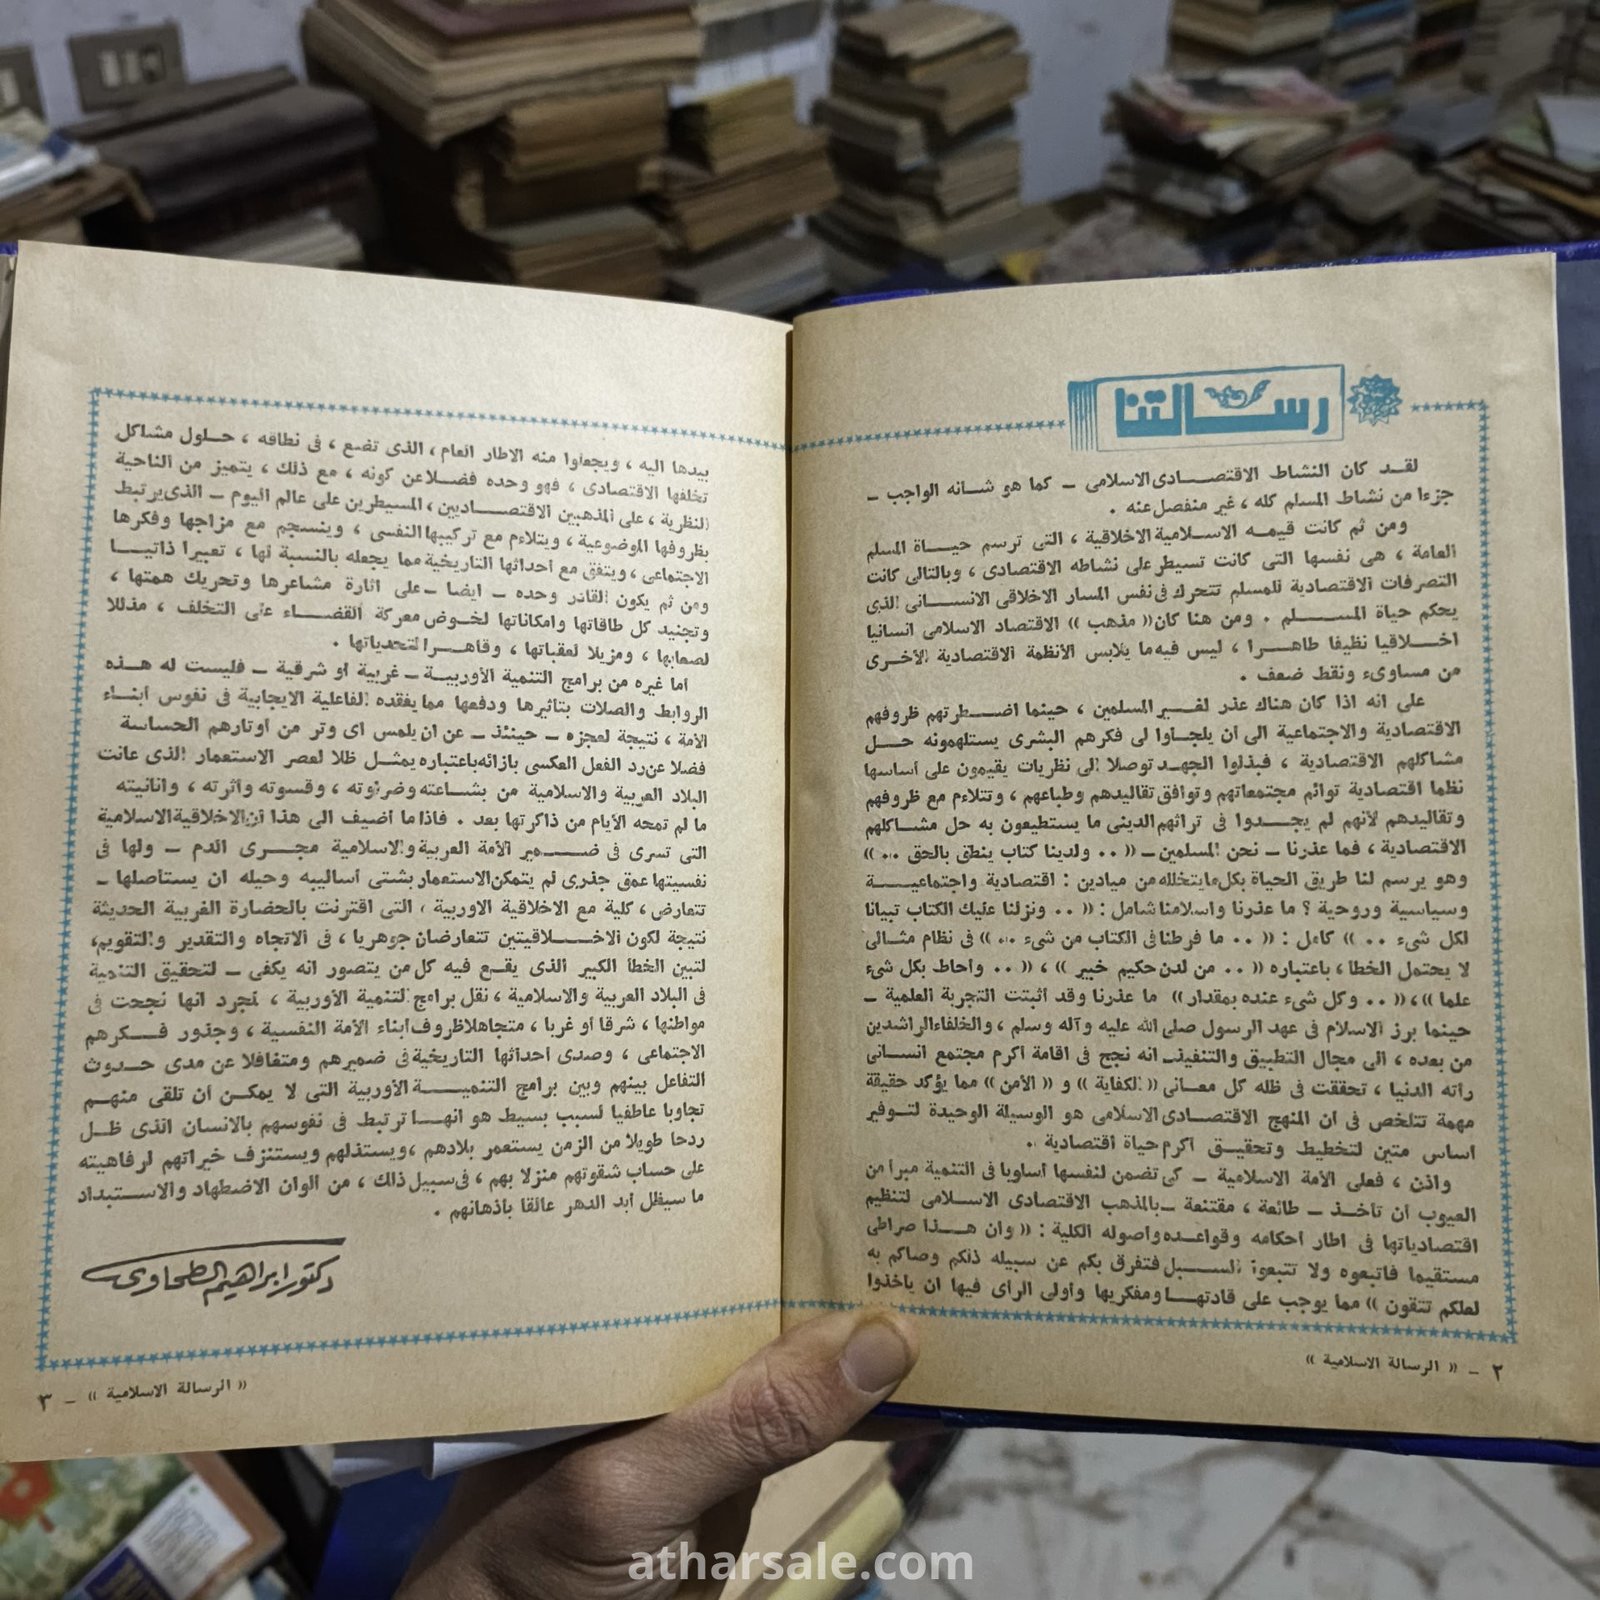 رسالتنا
لقد كان النشاط الاقتصادى الاسلامى – كما هو شانه الواجب –
جزءا من نشاط المسلم كله ، غير منفصل عنه .
ومن ثم كانت قيمه الاسلامية الاخلاقية ، التى ترسم حياة المسلم
العامة ، هى نفسها التى كانت تسيطر على نشاطه الاقتصادى ، وبالتالى كانت
التصرفات الاقتصادية للمسلم تتحرك فى نفس المسار الاخلاقى الانسانى الذى
يحكم حياة المسلم . ومن هنا كان (( مذهب )) الاقتصاد الاسلامى انسانيا
اخلاقيا نظيفا طاهرا ، ليس فيه ما يلابس الأنظمة الاقتصادية الأخرى
من مساوىء ونقط ضعف .
على انه اذا كان هناك عذر لغير المسلمين ، حينما اضطرتهم ظروفهم
الاقتصادية والاجتماعية الى ان يلجاوا لى فكرهم البشرى يستلهمونه حل
مشاكلهم الاقتصادية ، فبذلوا الجهد توصلا الى نظريات يقيمون على أساسها
نظما اقتصادية توائم مجتمعاتهم وتوافق تقاليدهم وطباعهم ، وتتلاءم مع ظروفهم
وتقاليدهم لأنهم لم يجدوا فى تراثهم الدينى ما يستطيعون به حل مشاكلهم
الاقتصادية ، فما عذرنا – نحن المسلمين – (( .. ولدينا كتاب ينطق بالحق .. ))
وهو يرسم لنا طريق الحياة بكل ما يتخلله من ميادين : اقتصادية واجتماعية
وسياسية وروحية ؟ ما عذرنا واسلامنا شامل : (( .. ونزلنا عليك الكتاب تبيانا
لكل شىء .. )) كامل : (( .. ما فرطنا فى الكتاب من شىء .. )) فى نظام مثالى
لا يحتمل الخطا ، باعتباره (( .. من لدن حكيم خبير )) ، (( .. واحاط بكل شىء
علما )) ، (( .. وكل شىء عنده بمقدار )) ما عذرنا وقد أثبتت التجربة العلمية –
حينما برز الاسلام فى عهد الرسول صلى الله عليه وآله وسلم ، والخلفاء الراشدين
من بعده ، الى مجال التطبيق والتنفيذ – انه نجح فى اقامة اكرم مجتمع انسانى
رأته الدنيا ، تحققت فى ظله كل معانى (( الكفاية )) و (( الأمن )) مما يؤكد حقيقة
مهمة تتلخص فى ان المنهج الاقتصادى الاسلامى هو الوسيلة الوحيدة لتوفير
اساس متين لتخطيط وتحقيق اكرم حياة اقتصادية .
واذن ، فعلى الأمة الاسلامية – كى تضمن لنفسها أسلوبا فى التنمية مبرا من
العيوب ان تأخذ – طائعة ، مقتنعة – بالمذهب الاقتصادى الاسلامى لتنظيم
اقتصادياتها فى اطار احكامه وقواعده واصوله الكلية : (( وان هذا صراطى
مستقيما فاتبعوه ولا تتبعوا السبل فتفرق بكم عن سبيله ذلكم وصاكم به
لعلكم تتقون )) مما يوجب على قادتها ومفكريها وأولى الرأى فيها ان يأخذوا
٢ – (( الرسالة الاسلامية ))
بيدها اليه ، ويجعلوا منه الاطار العام ، الذى تضع ، فى نطاقه ، حلول مشاكل
تخلفها الاقتصادى ، فهو وحده فضلا عن كونه ، مع ذلك ، يتميز من الناحية
النظرية ، على المذهبين الاقتصاديين ، المسيطرين على عالم اليوم – الذى يرتبط
بظروفها الموضوعية ، ويتلاءم مع تركيبها النفسى ، وينسجم مع مزاجها وفكرها
الاجتماعى ، ويتفق مع احداثها التاريخية مما يجعله بالنسبة لها ، تعبيرا ذاتيا
ومن ثم يكون القادر وحده – ايضا – على اثارة مشاعرها وتحريك همتها ،
وتجنيد كل طاقاتها وامكاناتها لخوض معركة القضاء على التخلف ، مذللا
لصعابها ، ومزيلا لعقباتها ، وقاهرا لتحدياتها .
اما غيره من برامج التنمية الأوربية – غربية او شرقية – فليست له هذه
الروابط والصلات بتاثيرها ودفعها مما يفقده الفاعلية الايجابية فى نفوس أبناء
الأمة ، نتيجة لعجزه – حينئذ – عن ان يلمس اى وتر من اوتارهم الحساسة
فضلا عن رد الفعل العكسى بازائه باعتباره يمثل ظلا لعصر الاستعمار الذى عانت
البلاد العربية والاسلامية من بشاعته وضراوته ، وقسوته وأثرته ، وانانيته
ما لم تمحه الأيام من ذاكرتها بعد . فاذا ما اضيف الى هذا ان الاخلاقية الاسلامية
التى تسرى فى ضمير الأمة العربية والاسلامية مجرى الدم – ولها فى
نفسيتها عمق جذرى لم يتمكن الاستعمار بشتى أساليبه وحيله ان يستاصلها –
تتعارض ، كلية مع الاخلاقية الاوربية ، التى اقترنت بالحضارة الغربية الحديثة
نتيجة لكون الاخلاقيتين تتعارضان جوهريا ، فى الاتجاه والتقدير والتقويم ،
لتبين الخطأ الكبير الذى يقع فيه كل من يتصور انه يكفى – لتحقيق التنمية
فى البلاد العربية والاسلامية ، نقل برامج التنمية الأوربية ، لمجرد انها نجحت فى
مواطنها ، شرقا أو غربا ، متجاهلا ظروف ابناء الأمة النفسية ، وجذور فكرهم
الاجتماعى ، وصدى احداثها التاريخية فى ضميرهم ومتغافلا عن مدى حدوث
التفاعل بينهم وبين برامج التنمية الأوربية التى لا يمكن ان تلقى منهم
تجاوبا عاطفيا لسبب بسيط هو انها ترتبط فى نفوسهم بالانسان الذى ظل
ردحا طويلا من الزمن يستعمر بلادهم ، ويستذلهم ويستنزف خيراتهم لرفاهيته
على حساب شقوتهم منزلا بهم ، فى سبيل ذلك ، من الوان الاضطهاد والاستبداد
ما سيظل أبد الدهر عالقا بأذهانهم .
دكتور ابراهيم الطحاوى
(( الرسالة الاسلامية )) – ٣
atharsale.com